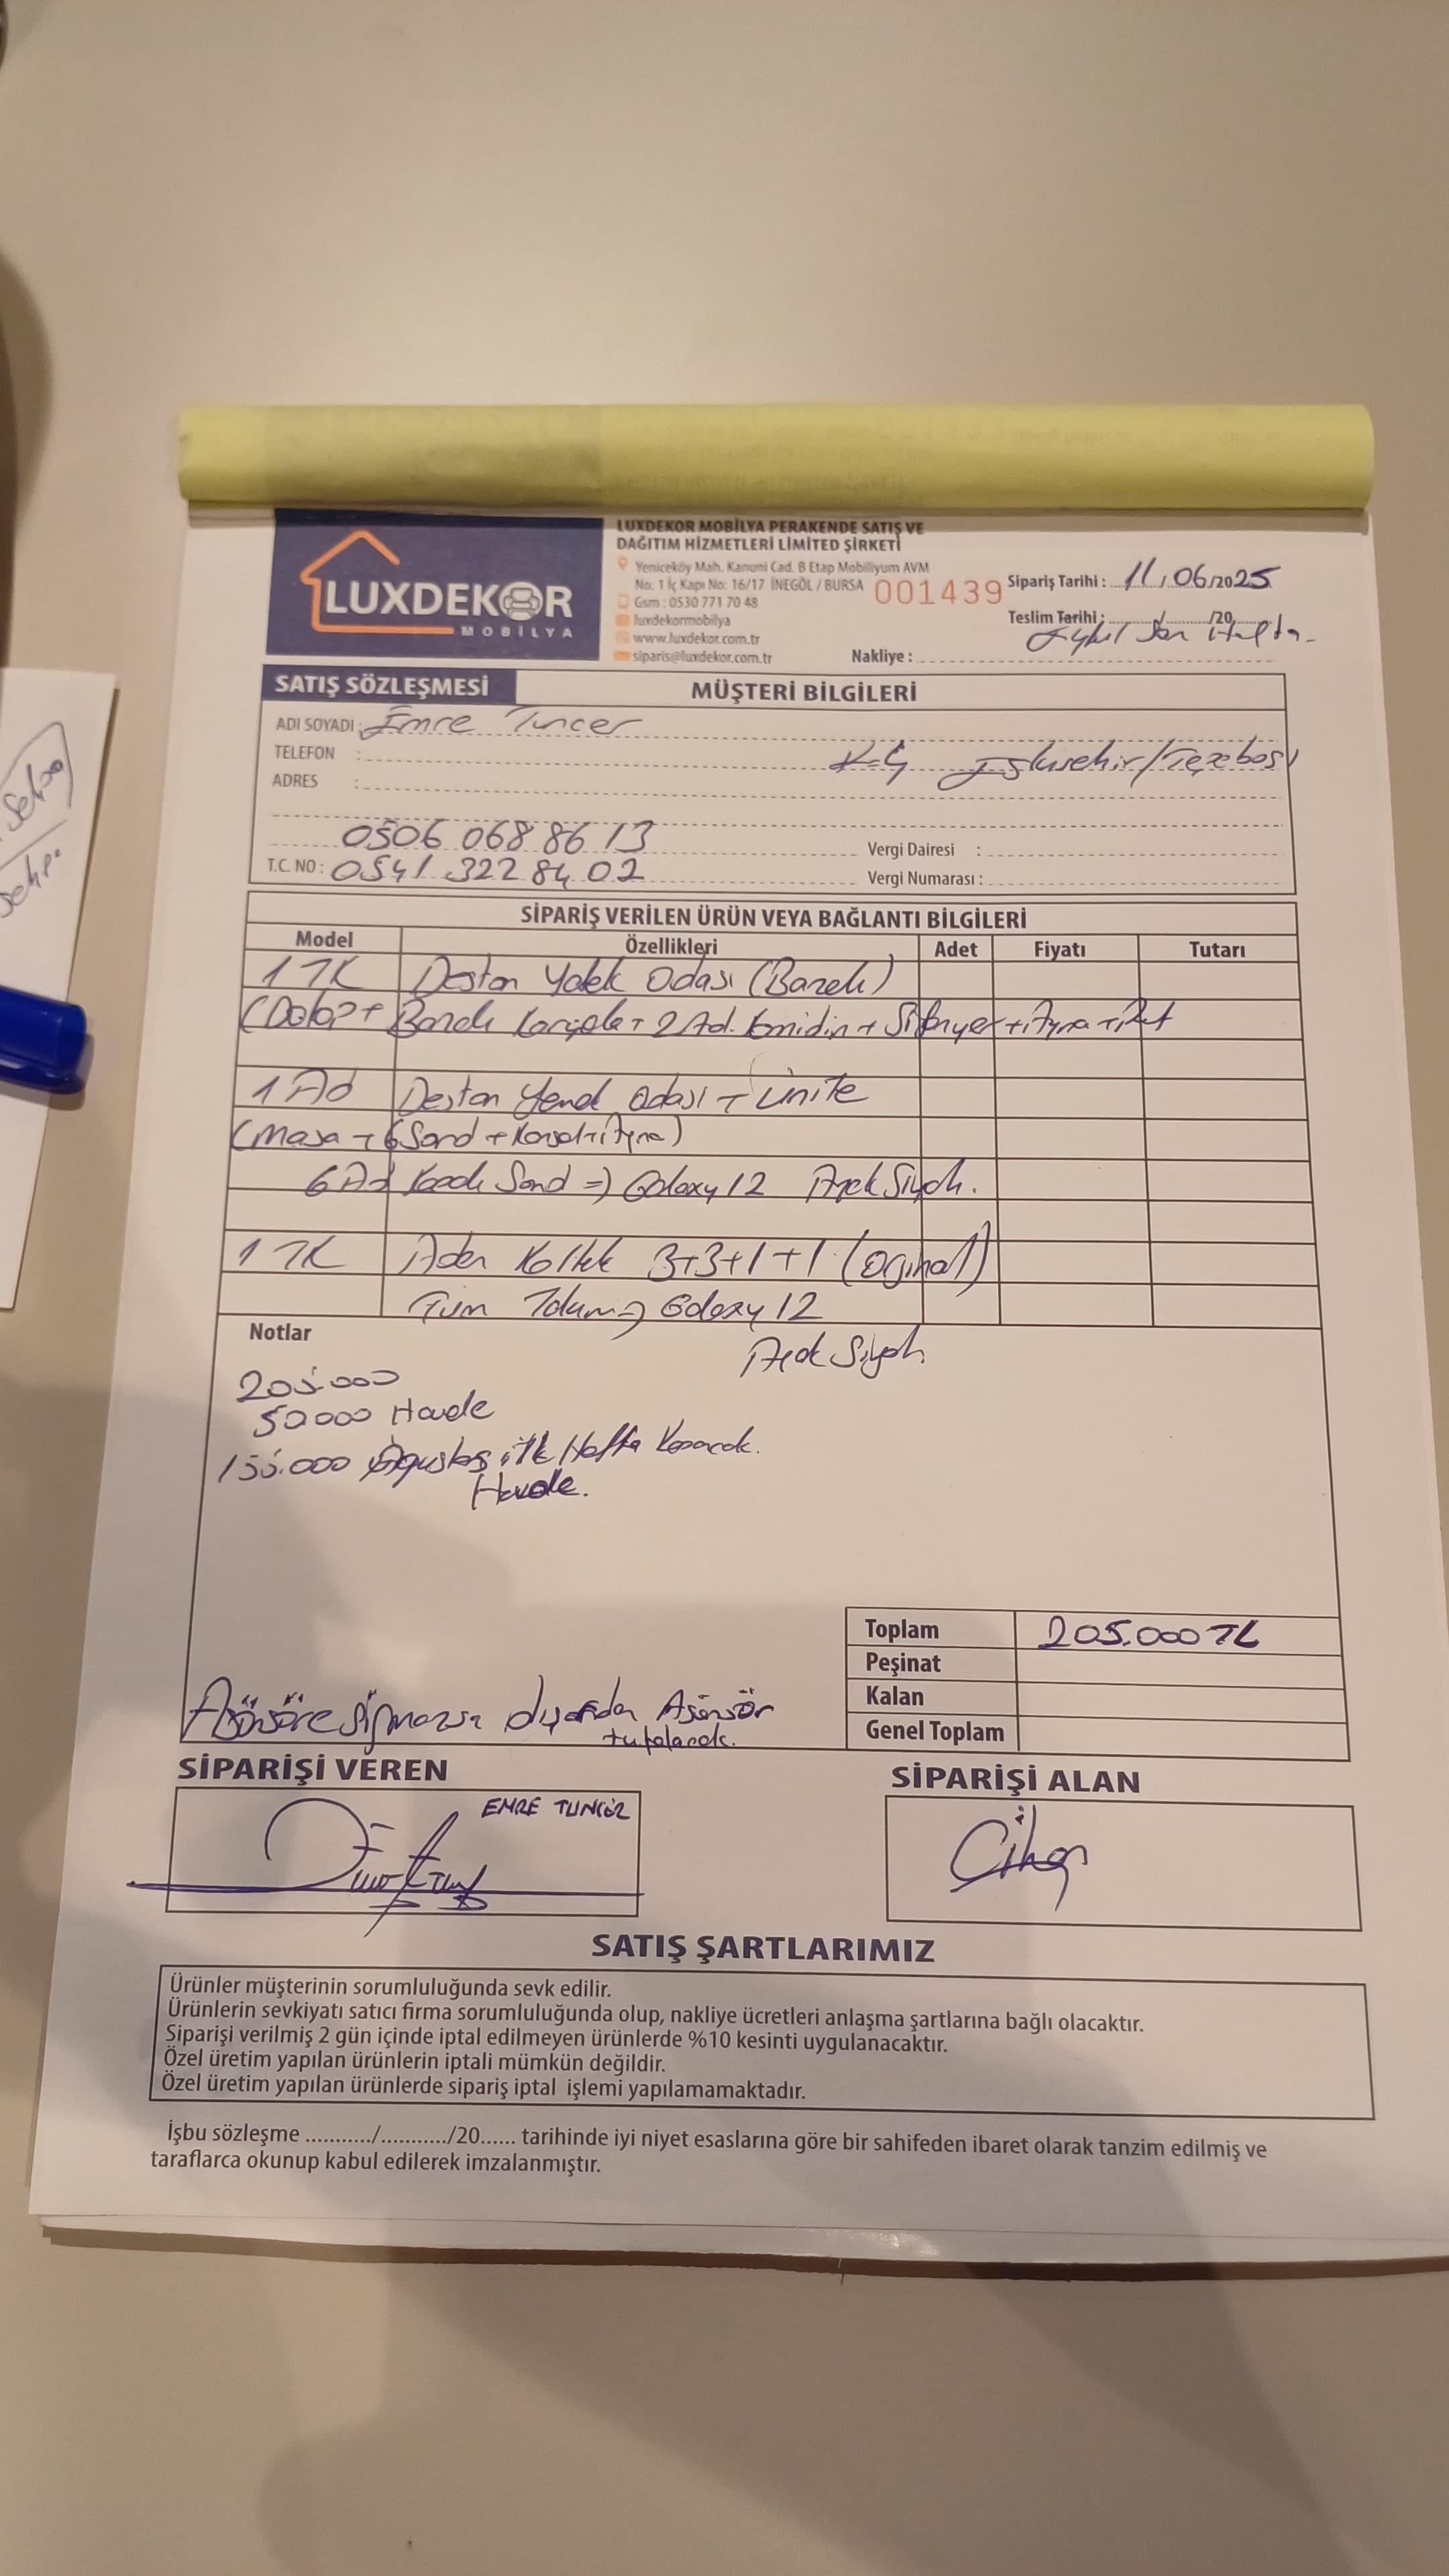 LUXDEKOR
MOBİLYA
LUXDEKOR MOBİLYA PERAKENDE SATIŞ VE
DAĞITIM HİZMETLERİ LİMİTED ŞİRKETİ
Yeniceköy Mah. Kanuni Cad. B Etap Mobiliyum AVM
No: 1 İç Kapı No: 16/17 İNEGÖL / BURSA
Gsm : 0530 771 70 48
luxdekormobilya
www.luxdekor.com.tr
siparis@luxdekor.com.tr
001439
Sipariş Tarihi : 11/06/2025
Teslim Tarihi : /20
Eylül Son Hafta
Nakliye :
SATIŞ SÖZLEŞMESİ
MÜŞTERİ BİLGİLERİ
ADI SOYADI : Emre Tuncer
TELEFON :
Eskişehir/Tepebaşı
ADRES :
0506 068 86 13
Vergi Dairesi :
T.C. NO : 0541 322 84 02
Vergi Numarası :
SİPARİŞ VERİLEN ÜRÜN VEYA BAĞLANTI BİLGİLERİ
Model Özellikleri Adet Fiyatı Tutarı
1 TK Destan Yatak Odası (Bazalı)
(Dolap + Bazalı Karyola + 2 Ad. Komidin + Şifonyer + Ayna +
1 Ad Destan Yemek Odası + Ünite
(Masa + 6 Sand + Konsol + Ayna)
6 Ad Sand => Galaxy 12 Ayak Siyah.
1 TK Aden Koltuk 3+3+1+1 (Orjinal)
Tüm Takım => Galaxy 12
Ayak Siyah
Notlar
205.000
50000 Havale
155.000 Ağustos ilk Hafta Kapacak.
Havale.
Toplam 205.000 TL
Peşinat
Kalan
Genel Toplam
Asönsöre sığmazsa dışardan Asönsör
tutulacak.
SİPARİŞİ VEREN
SİPARİŞİ ALAN
EMRE TUNCER
Cihan
SATIŞ ŞARTLARIMIZ
Ürünler müşterinin sorumluluğunda sevk edilir.
Ürünlerin sevkiyatı satıcı firma sorumluluğunda olup, nakliye ücretleri anlaşma şartlarına bağlı olacaktır.
Siparişi verilmiş 2 gün içinde iptal edilmeyen ürünlerde %10 kesinti uygulanacaktır.
Özel üretim yapılan ürünlerin iptali mümkün değildir.
Özel üretim yapılan ürünlerde sipariş iptal işlemi yapılamamaktadır.
İşbu sözleşme .........../.........../20...... tarihinde iyi niyet esaslarına göre bir sahifeden ibaret olarak tanzim edilmiş ve
taraflarca okunup kabul edilerek imzalanmıştır.